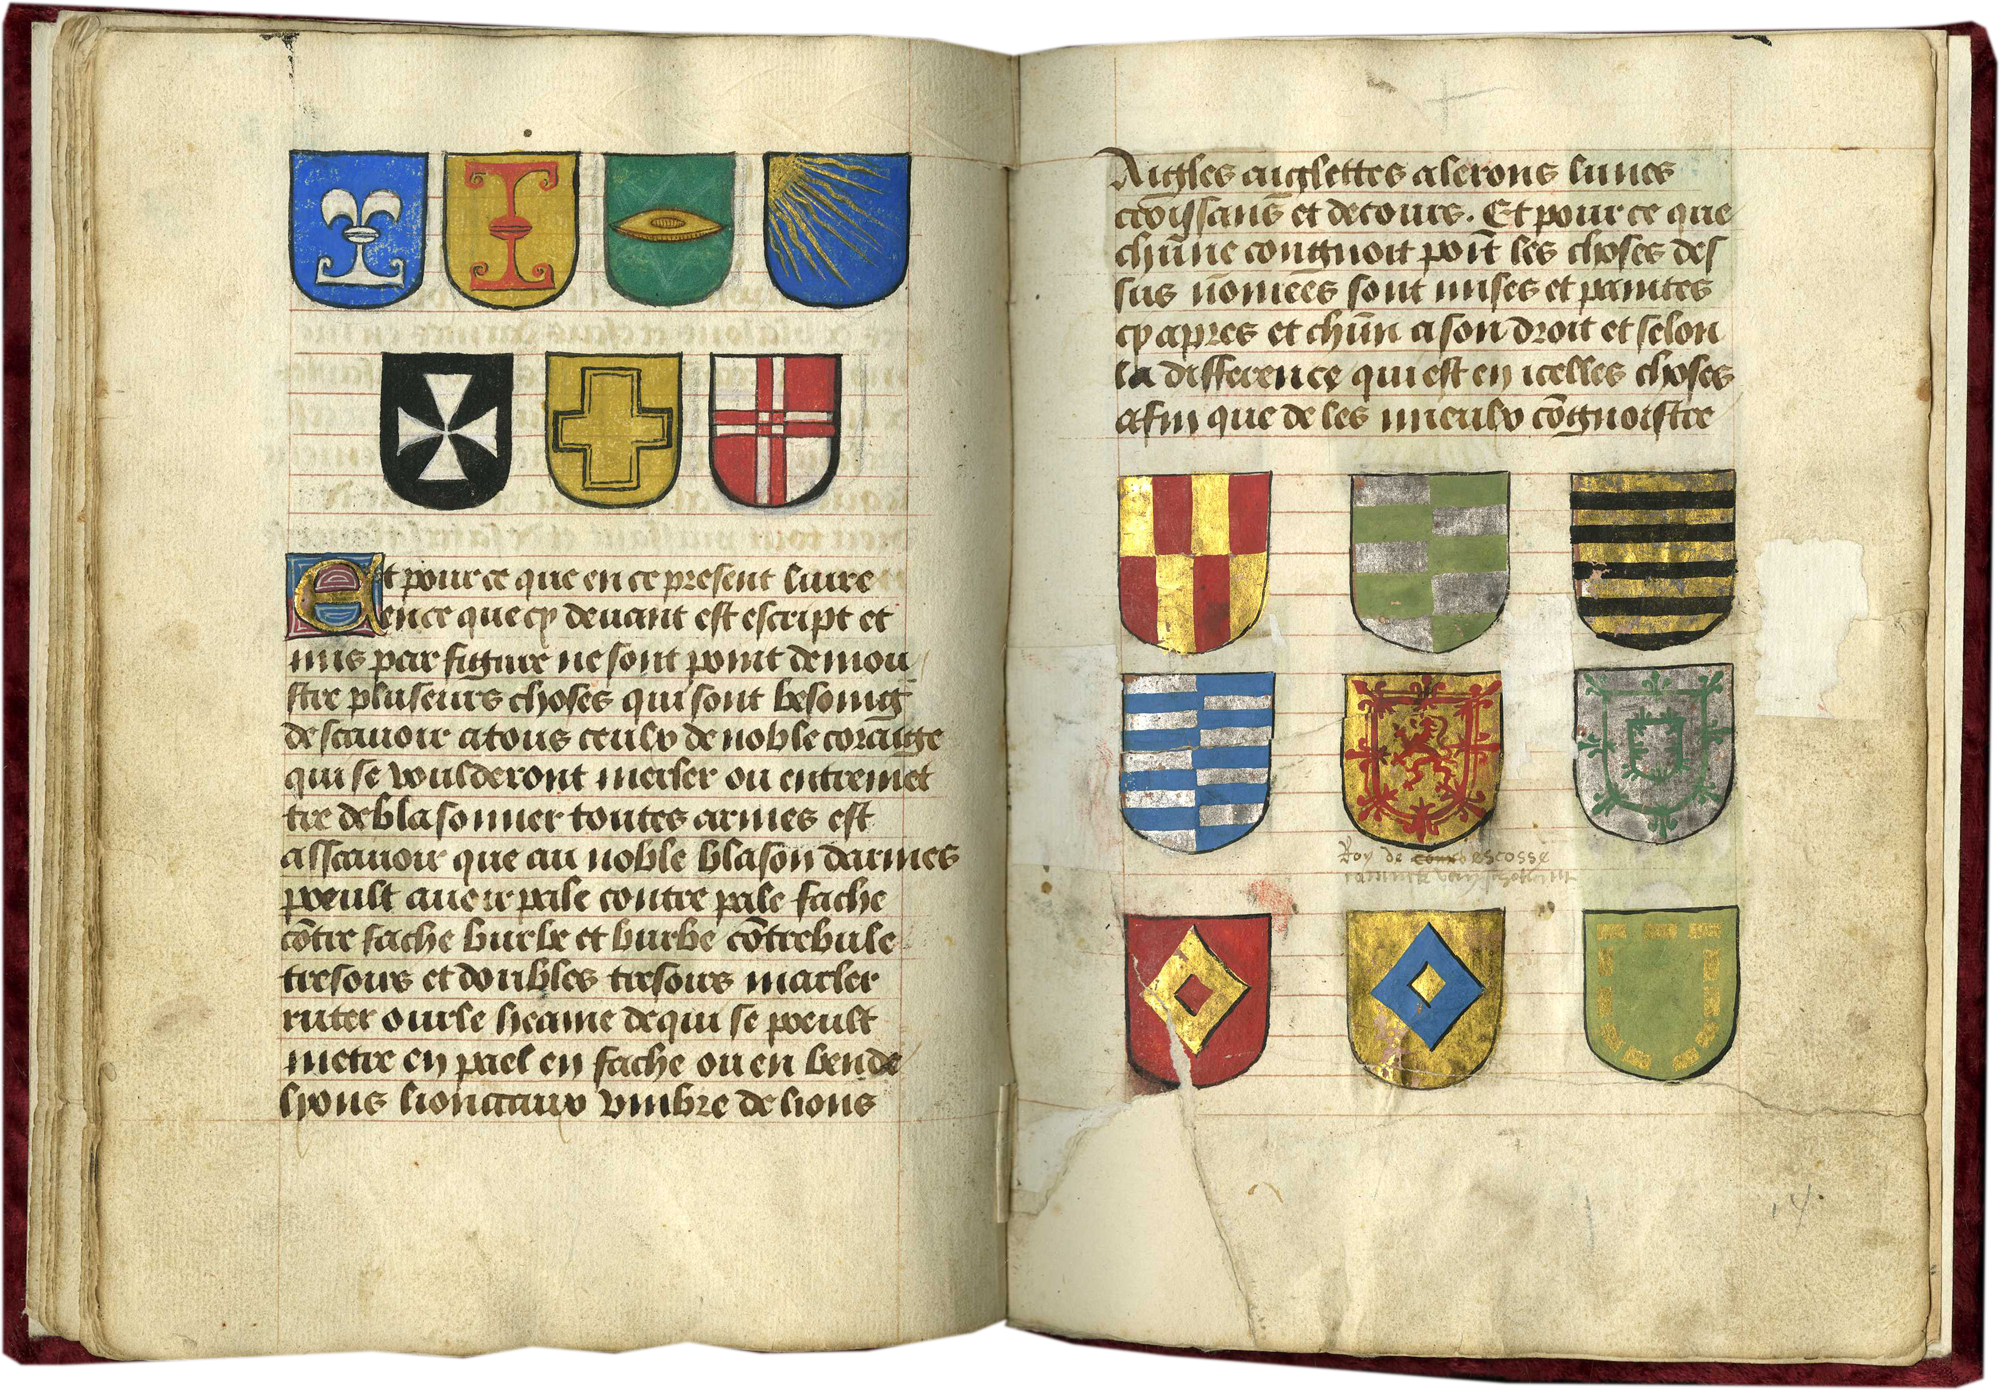 Et pour ce que en ce present livre
ence que cy devant est escript et
mis par figure ne sont point demou
stre pluseurs choses qui sont besoing
de scavoir a tous ceulx de noble coraige
qui se voulderont mesler ou entremet
tre de blasonner toutes armes est
assavoir que au noble blason darmes
poeult aueir pale contre pale fache
cōtre fache burle et burbe cōtrebule
tresours et doubles tresours macler
ruter ourle heame de qui se poeult
metre en pael en fache ou en bende
lyons lionceaux vmbre de lions
Aigles aiglettes alerons lunes
croissans et decours. Et pour ce que
chūne congnoit poīt les choses des
sus nōmees sont mises et paintes
cy apres et chūn a son droit et selon
la difference qui est en icelles choses
afin que de les mieulx cōgnoistre
Roy de escosse
14